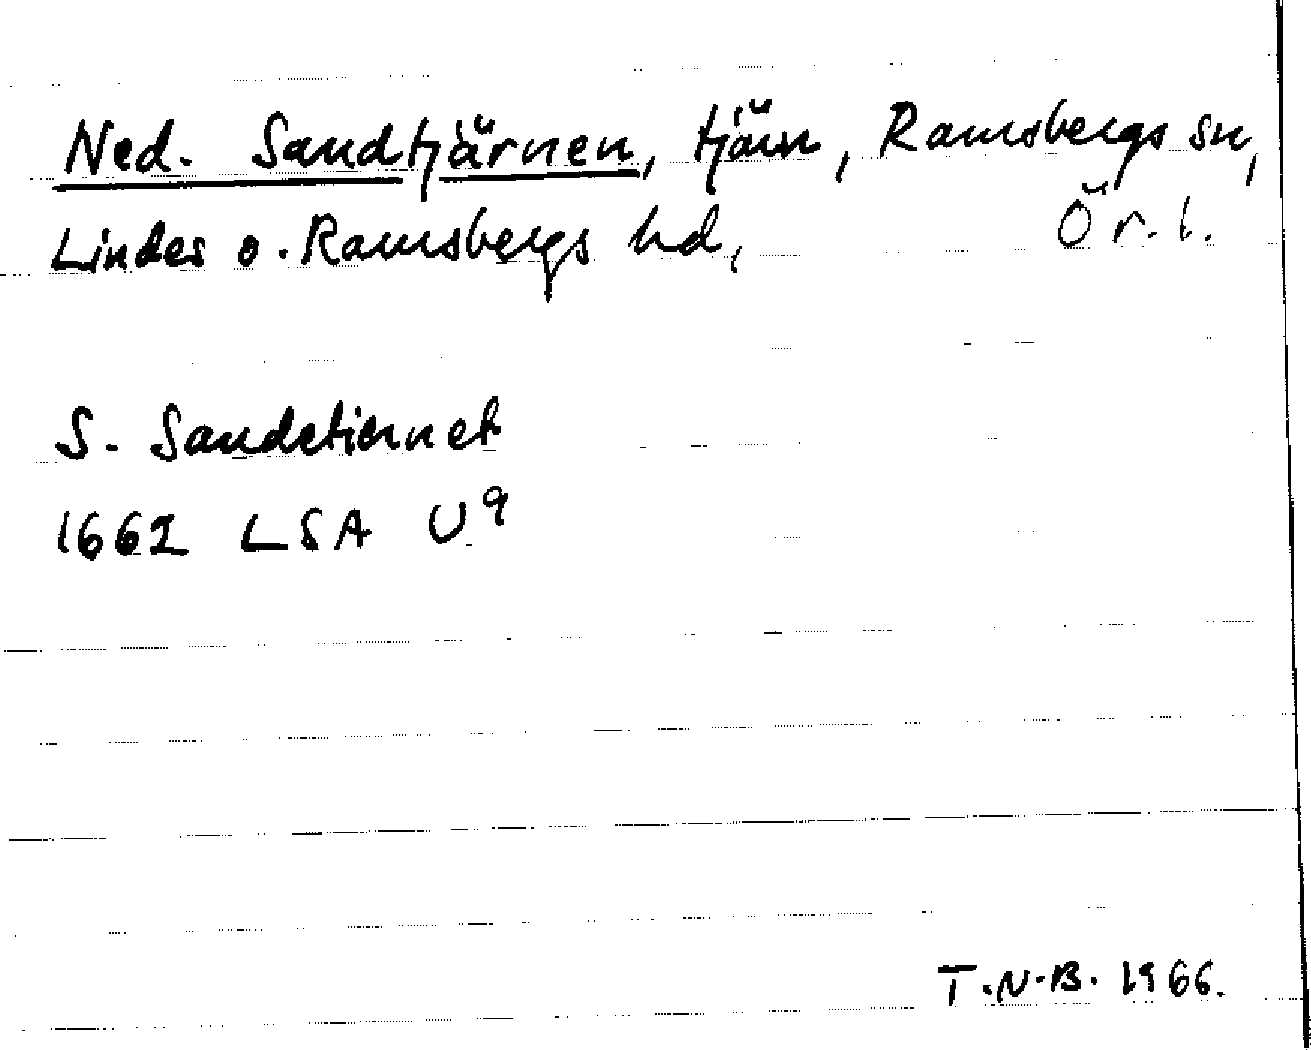 Ned. Sandtjärnen, tjärn, Ramsbergs sn,
Lindes o. Ramsbergs hd, Ör. l.
S. Sandetiernet
1662 LSA U9
T.N.B. 1966.